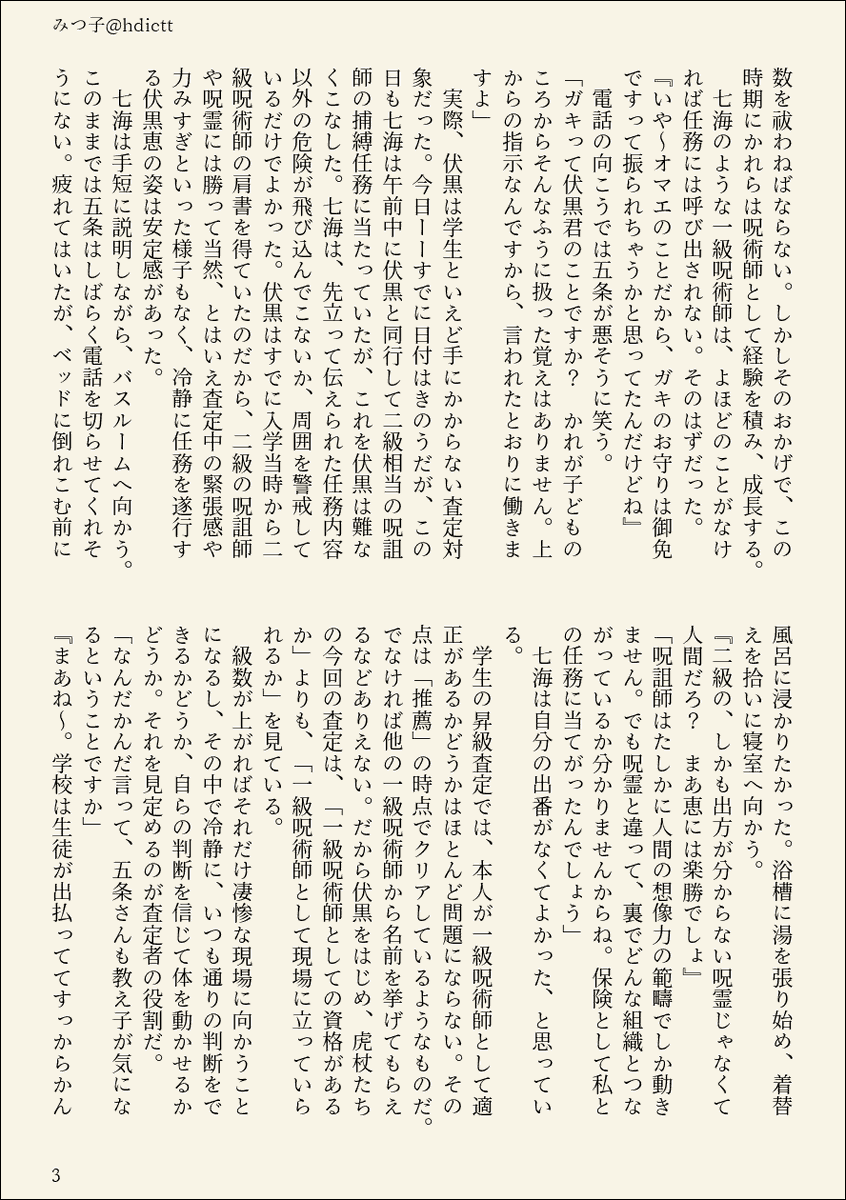 みつ子@hdictt
数を祓わねばならない。しかしそのおかげで、この
時期にかれらは呪術師として経験を積み、成長する。
　七海のような一級呪術師は、よほどのことがなけ
れば任務には呼び出されない。そのはずだった。
『いや～オマエのことだから、ガキのお守りは御免
ですって振られちゃうかと思ってたんだけどね』
　電話の向こうでは五条が悪そうに笑う。
「ガキって伏黒君のことですか？　かれが子どもの
ころからそんなふうに扱った覚えはありません。上
からの指示なんですから、言われたとおりに働きま
すよ」
　実際、伏黒は学生といえど手にかからない査定対
象だった。今日ーーすでに日付はきのうだが、この
日も七海は午前中に伏黒と同行して二級相当の呪詛
師の捕縛任務に当たっていたが、これを伏黒は難な
くこなした。七海は、先立って伝えられた任務内容
以外の危険が飛び込んでこないか、周囲を警戒して
いるだけでよかった。伏黒はすでに入学当時から二
級呪術師の肩書を得ていたのだから、二級の呪詛師
や呪霊には勝って当然、とはいえ査定中の緊張感や
力みすぎといった様子もなく、冷静に任務を遂行す
る伏黒恵の姿は安定感があった。
　七海は手短に説明しながら、バスルームへ向かう。
このままでは五条はしばらく電話を切らせてくれそ
うにない。疲れてはいたが、ベッドに倒れこむ前に
風呂に浸かりたかった。浴槽に湯を張り始め、着替
えを拾いに寝室へ向かう。
『二級の、しかも出方が分からない呪霊じゃなくて
人間だろ？　まあ恵には楽勝でしょ』
「呪詛師はたしかに人間の想像力の範疇でしか動き
ません。でも呪霊と違って、裏でどんな組織とつな
がっているか分かりませんからね。保険として私と
の任務に当てがったんでしょう」
　七海は自分の出番がなくてよかった、と思ってい
る。
　学生の昇級査定では、本人が一級呪術師として適
正があるかどうかはほとんど問題にならない。その
点は「推薦」の時点でクリアしているようなものだ。
でなければ他の一級呪術師から名前を挙げてもらえ
るなどありえない。だから伏黒をはじめ、虎杖たち
の今回の査定は、「一級呪術師としての資格がある
か」よりも、「一級呪術師として現場に立っていら
れるか」を見ている。
　級数が上がればそれだけ凄惨な現場に向かうこと
になるし、その中で冷静に、いつも通りの判断をで
きるかどうか、自らの判断を信じて体を動かせるか
どうか。それを見定めるのが査定者の役割だ。
「なんだかんだ言って、五条さんも教え子が気にな
るということですか」
『まあね～。学校は生徒が出払っててすっからかん
3